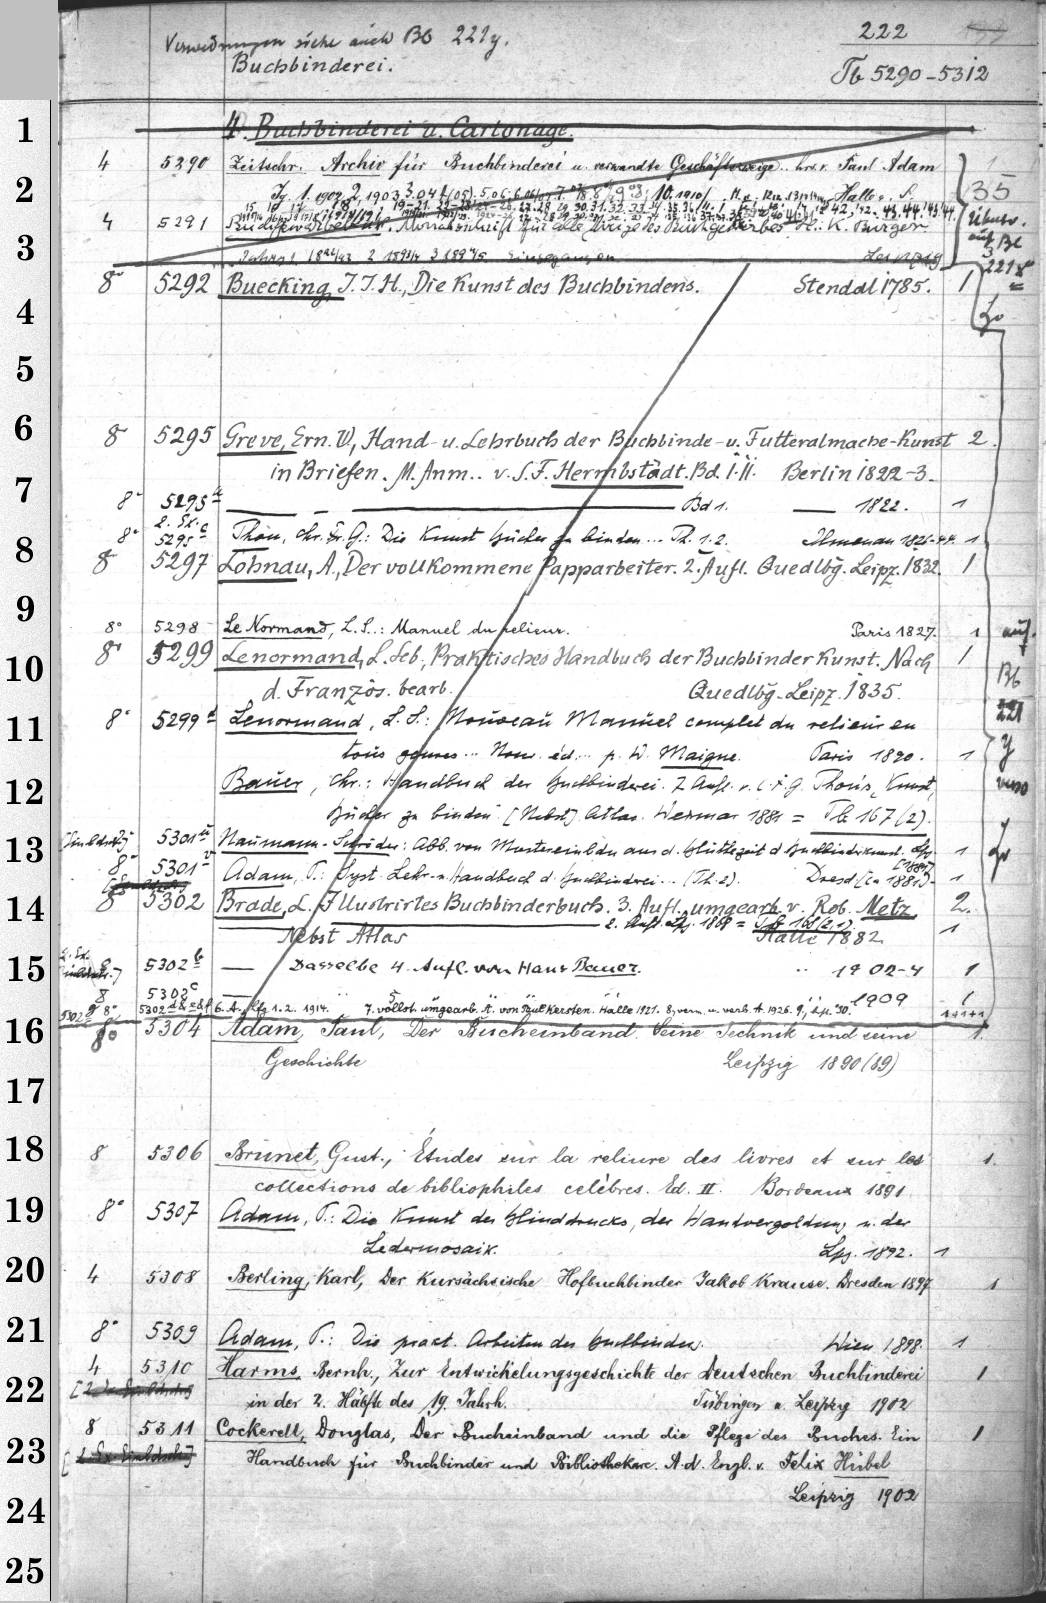 222
Verweisungen siehe auch Bb 221y.
Buchbinderei.
Tb 5290-5312
1
4. Buchbinderei u. Cartonage.
4 5290 Zeitschr. Archiv für Buchbinderei u. verwandte Geschäftszweige.. hrsv. Paul Adam
2
35
Halle a. S.
4 5291 Monatsschrift für alle Zweige des Buchgewerbes H.: K. Burger
3
Leipzig
auf Bb
221
8° 5292 Buecking, J.J.H., Die Kunst des Buchbindens. Stendal 1785. 1
4
5
6
8° 5295 Greve, Ern. W., Hand- u. Lehrbuch der Buchbinde- u. Futteralmache-Kunst 2.
in Briefen. M. Anm.. v. S.F. Hermbstädt. Bd. I.II. Berlin 1822-3.
7
8° 5295 a — — — Bd 1. — 1822. 1
2. Ex.
8° 5295 c Thon, Chr. Fr. G.: Die Kunst Bücher zu binden... Th. 1.2. Ilmenau 1826-44. 1
8
8° 5297 Löhnau, A., Der vollkommene Papparbeiter. 2. Aufl. Quedlbg. Leipz. 1832. 1
9
8° 5298 Le Normand, L.S..: Manuel du relieur. Paris 1827. 1
10
8° 5299 Lenormand, L. Seb., Praktisches Handbuch der Buchbinderkunst. Nach 1
d. Französ. bearb. Quedlbg-Leipz. 1835.
auf.
Bb
221
y
verso
11
8° 5299 a Lenormand, L. S.: Nouveau Manuel complet du relieur en
tous genres... Nouv. éd... p. W. Maigne. Paris 1890. 1
12
Bauer, Chr.: Handbuch der Buchbinderei. 7 Aufl. v. C. F. G. Thon's „Kunst,
Bücher zu binden" [Nebst] Atlas. Weimar 1881 = Tb 167(2).
13
5301 a Naumann-Schrider: Abb. von Mustereinbdn aus d. Blüthezeit d Buchbinderkunst. Lpz 1
8° 5301 v Adam, P.: Syst. Lehr- u. Handbuch d. Buchbinderei... (Th. 2). Dresd. [ca 1881]- 1
14
8° 5302 Brade, L. Illustrirtes Buchbinderbuch. 3. Aufl. umgearb. v. Rob. Metz 2.
2. Aufl. Lpz. 1868 = Tb 168(2,1). 1
Nebst Atlas Halle 1882
15
5302 b — Dasselbe 4. Aufl. von Hans Bauer. " 1902-4 1
8 5302 c 5 1909 1
5302 6. A. Lfg 1.2. 1914. 7. vollst. umgearb. A. von Paul Kersten. Halle 1921. 8, verm. u. verb. A. 1926. 9, " '30.
16
8° 5304 Adam, Paul, Der Bucheinband. Seine Technik und seine 1.
Geschichte Leipzig 1890 (89)
17
18
8 5306 Brunet, Gust., Études sur la reliure des livres et sur les 1.
collections de bibliophiles célèbres. Ed. II. Bordeaux 1891
19
8° 5307 Adam, P.: Die Kunst des Blinddrucks, der Handvergoldung u. der
Ledermosaik. Lpz. 1892. 1
20
4 5308 Berling, Karl, Der kursächsische Hofbuchbinder Jakob Krause. Dresden 1897 1
21
8° 5309 Adam, P.: Die pract. Arbeiten des Buchbinders. Wien 1898. 1
4 5310 Harms, Bernh., Zur Entwickelungsgeschichte der Deutschen Buchbinderei 1
22
in der 2. Hälfte des 19. Jahrh. Tübingen u. Leipzig 1902
8 5311 Cockerell, Douglas, Der Bucheinband und die Pflege des Buches. Ein 1
23
Handbuch für Buchbinder und Bibliothekare. A. d. Engl. v. Felix Hübel
Leipzig 1902
24
25